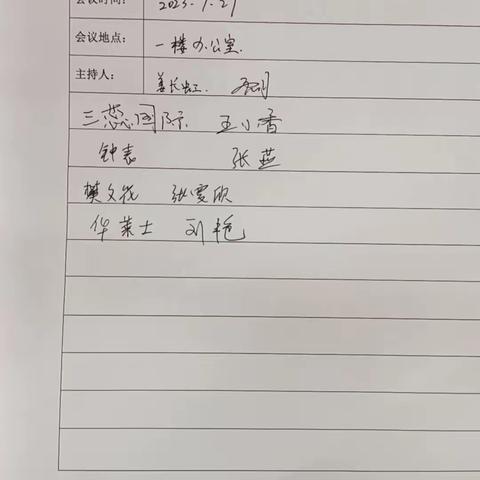 会议时间: 2023.7.27
会议地点: 一楼办公室.
主持人: 姜长虹.
三蕊国际 王小香
钟表 张燕
樊文花 张雯欣
华莱士 刘艳